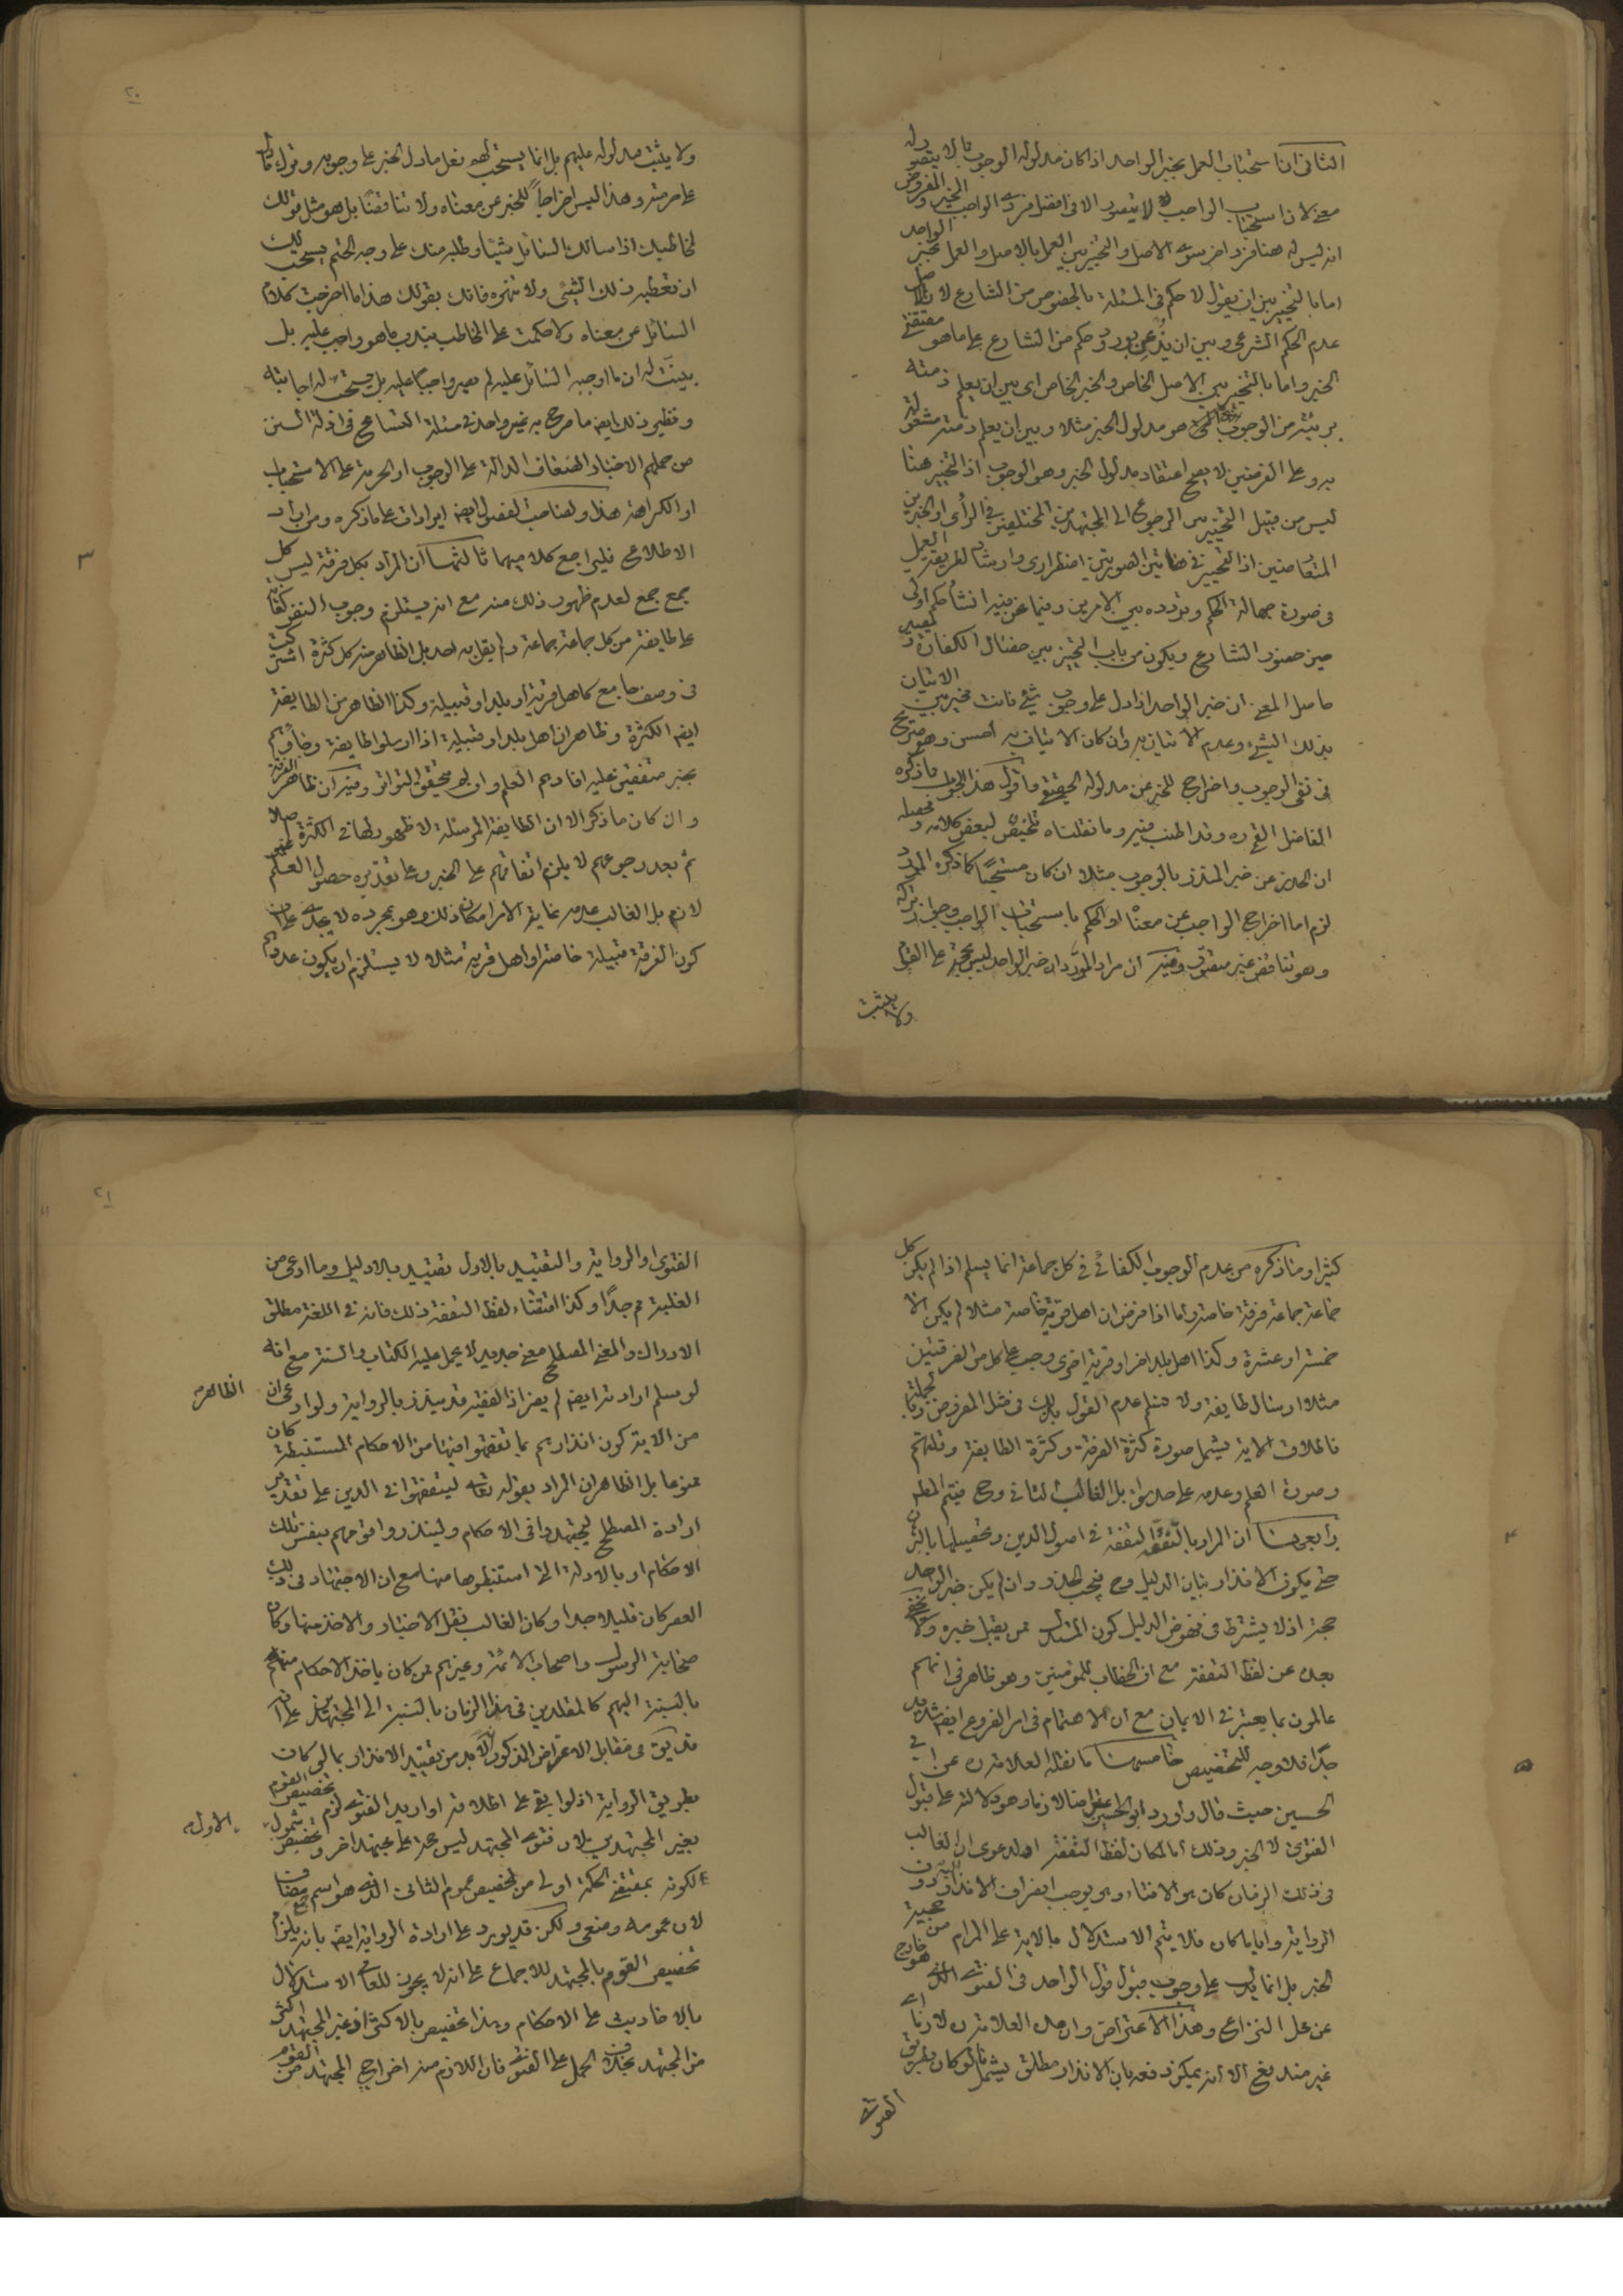 الثانى ان استحباب العمل بخبر الواحد اذا كان مدلوله الوجوب مما لا يتصور له
معنى لان استحباب الواجب لا يتصور الا فى افضل فردى الواجب المخير والمفروض
انه ليس له هنا فرد اخر سوى الاصل والتخيير بين العمل بالاصل والعمل بخبر الواحد
اما بالتخيير بين ان يقول لا حكم فى المسئلة بالخصوص من الشارع لاصل
عدم الحكم الشرعى وبين ان يذعن بورود حكم من الشارع على ما هو مقتضى
الخبر واما بالتخيير بين الاصل الخاص والخبر الخاص اى بين ان يعلم ذمته
بريئة من الوجوب الذى هو مدلول الخبر مثلا وبين ان يعلم ذمته مشغولة
به وعلى الفرضين لا يصح اعتقاد مدلول الخبر وهو الوجوب اذ التخيير هنا
ليس من قبيل التخيير بين الرجوع الى المجتهدين المختلفين فى الرأى او الخبرين
المتعارضين اذ التخيير فى هاتين الصورتين اضطرارى وارشاد لطريقة العمل
فى صورة جهالة الحكم وتردده بين الامرين وفيما نحن فيه انشاء حكم اولى
حين حضور الشارع ويكون من باب التخيير بين خصال الكفارة فيصير
حاصل المعنى ان خبر الواحد اذا دل على وجوب شئ فانت مخير بين الاتيان
بذلك الشئ وعدم الاتيان به وان كان الاتيان به احسن وهو صريح
فى نفى الوجوب واخراج للخبر عن مدلوله الحقيقى واقول هذا الجواب ما ذكره
الفاضل القمى ره وقد اطنب فيه وما نقلناه تلخيص لبعض كلامه ومحصله
ان الحذر عن خبر المنذر بالوجوب مثلا ان كان مستحبا كما ذكره المورد
لزم اما اخراج الواجب عن معناه او الحكم باستحباب الواجب وجواز تركه
وهو تناقض غير معقول وفيه ان مراد المورد ان خبر الواحد ليس بحجة على القوم
ولا يثبت
٢٠
ولا يثبت مدلوله عليهم بل انما يستحب لهم فعل ما دل الخبر على وجوبه وترك ما دل
على حرمته وهذا ليس اخراجا للخبر عن معناه ولا تناقضا بل هو مثل قولك
لمخاطبك اذا سالك السائل شيئا وطلبه منك على وجه الحتم يستحب لك
ان تعطيه ذلك الشئ ولا تنهره فانك بقولك هذا ما اخرجت كلام
السائل عن معناه ولا حكمت على المخاطب بندب ما هو واجب عليه بل
بينت له ان ما اوجبه السائل عليه لم يصر واجبا عليه بل يستحب له اجابته
ونظير ذلك ايضا ما صرح به غير واحد فى مسئلة التسامح فى ادلة السنن
من حملهم الاخبار الضعاف الدالة على الوجوب او الحرمة على الاستحباب
او الكراهة هذا ولصاحب الفصول ايضا ايرادات على ما ذكره ومن اراد
الاطلاع فليراجع كلاميهما ثالثها ان المراد بكل فرقة ليس كل
جمع جمع لعدم ظهور ذلك منه مع انه يستلزم وجوب النفر كفاية
على طايفة من كل جماعة جماعة ولم يقل به احد بل الظاهر منه كل كثرة اشتركت
فى وصف جامع كاهل قرية او بلد او قبيلة وكذا الظاهر من الطايفة
ايضا الكثرة وظاهر ان اهل بلد او قبيلة اذا ارسلوا طايفة وجاؤهم
بخبر متفقين عليه افادهم العلم وان لم يتحقق التواتر وفيه ان ظاهر الفرقة
وان كان ما ذكر الا ان الطايفة المرسلة لا ظهور لها فى الكثرة اصلا
ثم بعد رجوعهم لا يلزم اتفاقهم على الخبر وعلى تقديره حصول العلم غير
لازم بل الغالب عدمه غاية الامر امكان ذلك وهو بمجرده لا يجدى على ان
كون الفرقة قبيلة خاصة او اهل قرية مثلا لا يستلزم ان يكون عددهم
٣
كثيرا وما ذكره من عدم الوجوب الكفائى فى كل جماعة انما يسلم اذا لم يكن كل
جماعة جماعة فرقة خاصة واما اذا فرض ان اهل قرية خاصة مثلا لم يكن الا
خمسة او عشرة وكذا اهل بلد اخر او قرية اخرى وجب على كل من الفرقتين
مثلا ارسال طايفة ولا نسلم عدم القول بذلك فى مثل المفروض وبالجملة
فاطلاق الاية يشمل صورة كثرة الفرقة وكثرة الطايفة وقلتهم
وصورة العلم وعدمه على حد سواء بل الغالب الثانى وح فيتم المط
رابعها ان المراد بالتفقه التفقه فى اصول الدين وتحصيلها بالبرهان
حتى يكون الانذار ببيان الدليل وح فيجب الحذر وان لم يكن خبر الواحد
حجة اذ لا يشترط فى نهوض الدليل كون المستدل ممن يقبل خبره ولا يخفى
بعده عن لفظ التفقه مع ان الخطاب للمؤمنين وهو ظاهر فى انهم
عالمون بما يعتبر فى الايمان مع ان الاهتمام فى امر الفروع ايضا شديد
جدا فلا وجه للتخصيص خامسها ما نقله العلامة ره عن ابى
الحسين حيث قال واورد ابو الحسين اعتراضا لازما وهو دلالته على قبول
الفتوى لا الخبر وذلك اما لمكان لفظ التفقه او لدعوى ان الغالب
فى ذلك الزمان كان هو الافتاء وهو يوجب انصراف الانذار اليه دون
الرواية وايا ما كان فلا يتم الاستدلال بالاية على المرام من حجية
الخبر بل انما يدل على وجوب قبول قول الواحد فى الفتوى الذى هو خارج
عن محل النزاع وهذا الاعتراض وان عده العلامة ره لازما اى
غير مندفع الا انه يمكن دفعه بان الانذار مطلق يشمل ما لو كان بطريق
الفتوى
٤
٥
٢١
الفتوى او الرواية والتقييد بالاول تقييد بلا دليل وما ادعى من
الغلبة مم جدا وكذا اقتضاء لفظ التفقه ذلك فانه فى اللغة مطلق
الادراك والمعنى المصطلح معنى جديد لا يحمل عليه الكتاب والسنة مع انه
لو سلم ارادته ايضا لم يضر اذ الفقيه قد ينذر بالرواية ولو ادعى ان الظاهر
من الاية كون انذارهم بما تفقهوا فيها من الاحكام المستنبطة كان
ممنوعا بل الظاهر ان المراد بقوله تعالى ليتفقهوا فى الدين على تقدير
ارادة المصطلح ليجتهدوا فى الاحكام ولينذروا قومهم بنفس تلك
الاحكام او بالادلة التى استنبطوها منها مع ان الاجتهاد فى ذلك
العصر كان قليلا جدا وكان الغالب نقل الاخبار والاخذ منها وكان
صحابة الرسول واصحاب الائمة وغيرهم ممن كان ياخذ الاحكام منهم
بالنسبة اليهم كالمقلدين فى هذا الزمان بالنسبة الى المجتهدين على انه
قد يق فى مقابل الاعتراض المذكور لابد من تقييد الانذار بما لو كان
بطريق الرواية اذ لو ابقى على اطلاقه او اريد الفتوى لزم تخصيص القوم
بغير المجتهدين لان فتوى المجتهد ليس حجة على مجتهد اخر وتخصيص شمول الاول
لكونه بمقتضى الحكمة اولى من تخصيص عموم الثانى الذى هو اسم جمع مضاف
لان عمومه وضعى ولكن قد يورد على ارادة الرواية ايضا بانه يلزم
تخصيص القوم بالمجتهد للاجماع على انه لا يجوز للعامى الاستدلال
بالاحاديث على الاحكام وهذا تخصيص بالاكثر اذ غير المجتهد اكثر
من المجتهد بخلاف الحمل على الفتوى فان اللازم منه اخراج المجتهد من القوم